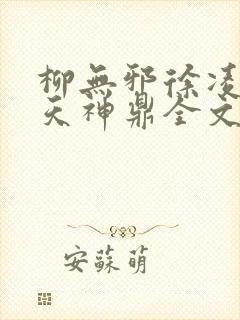 柳無邪徐凌
天神鼎全文
安蘇萌